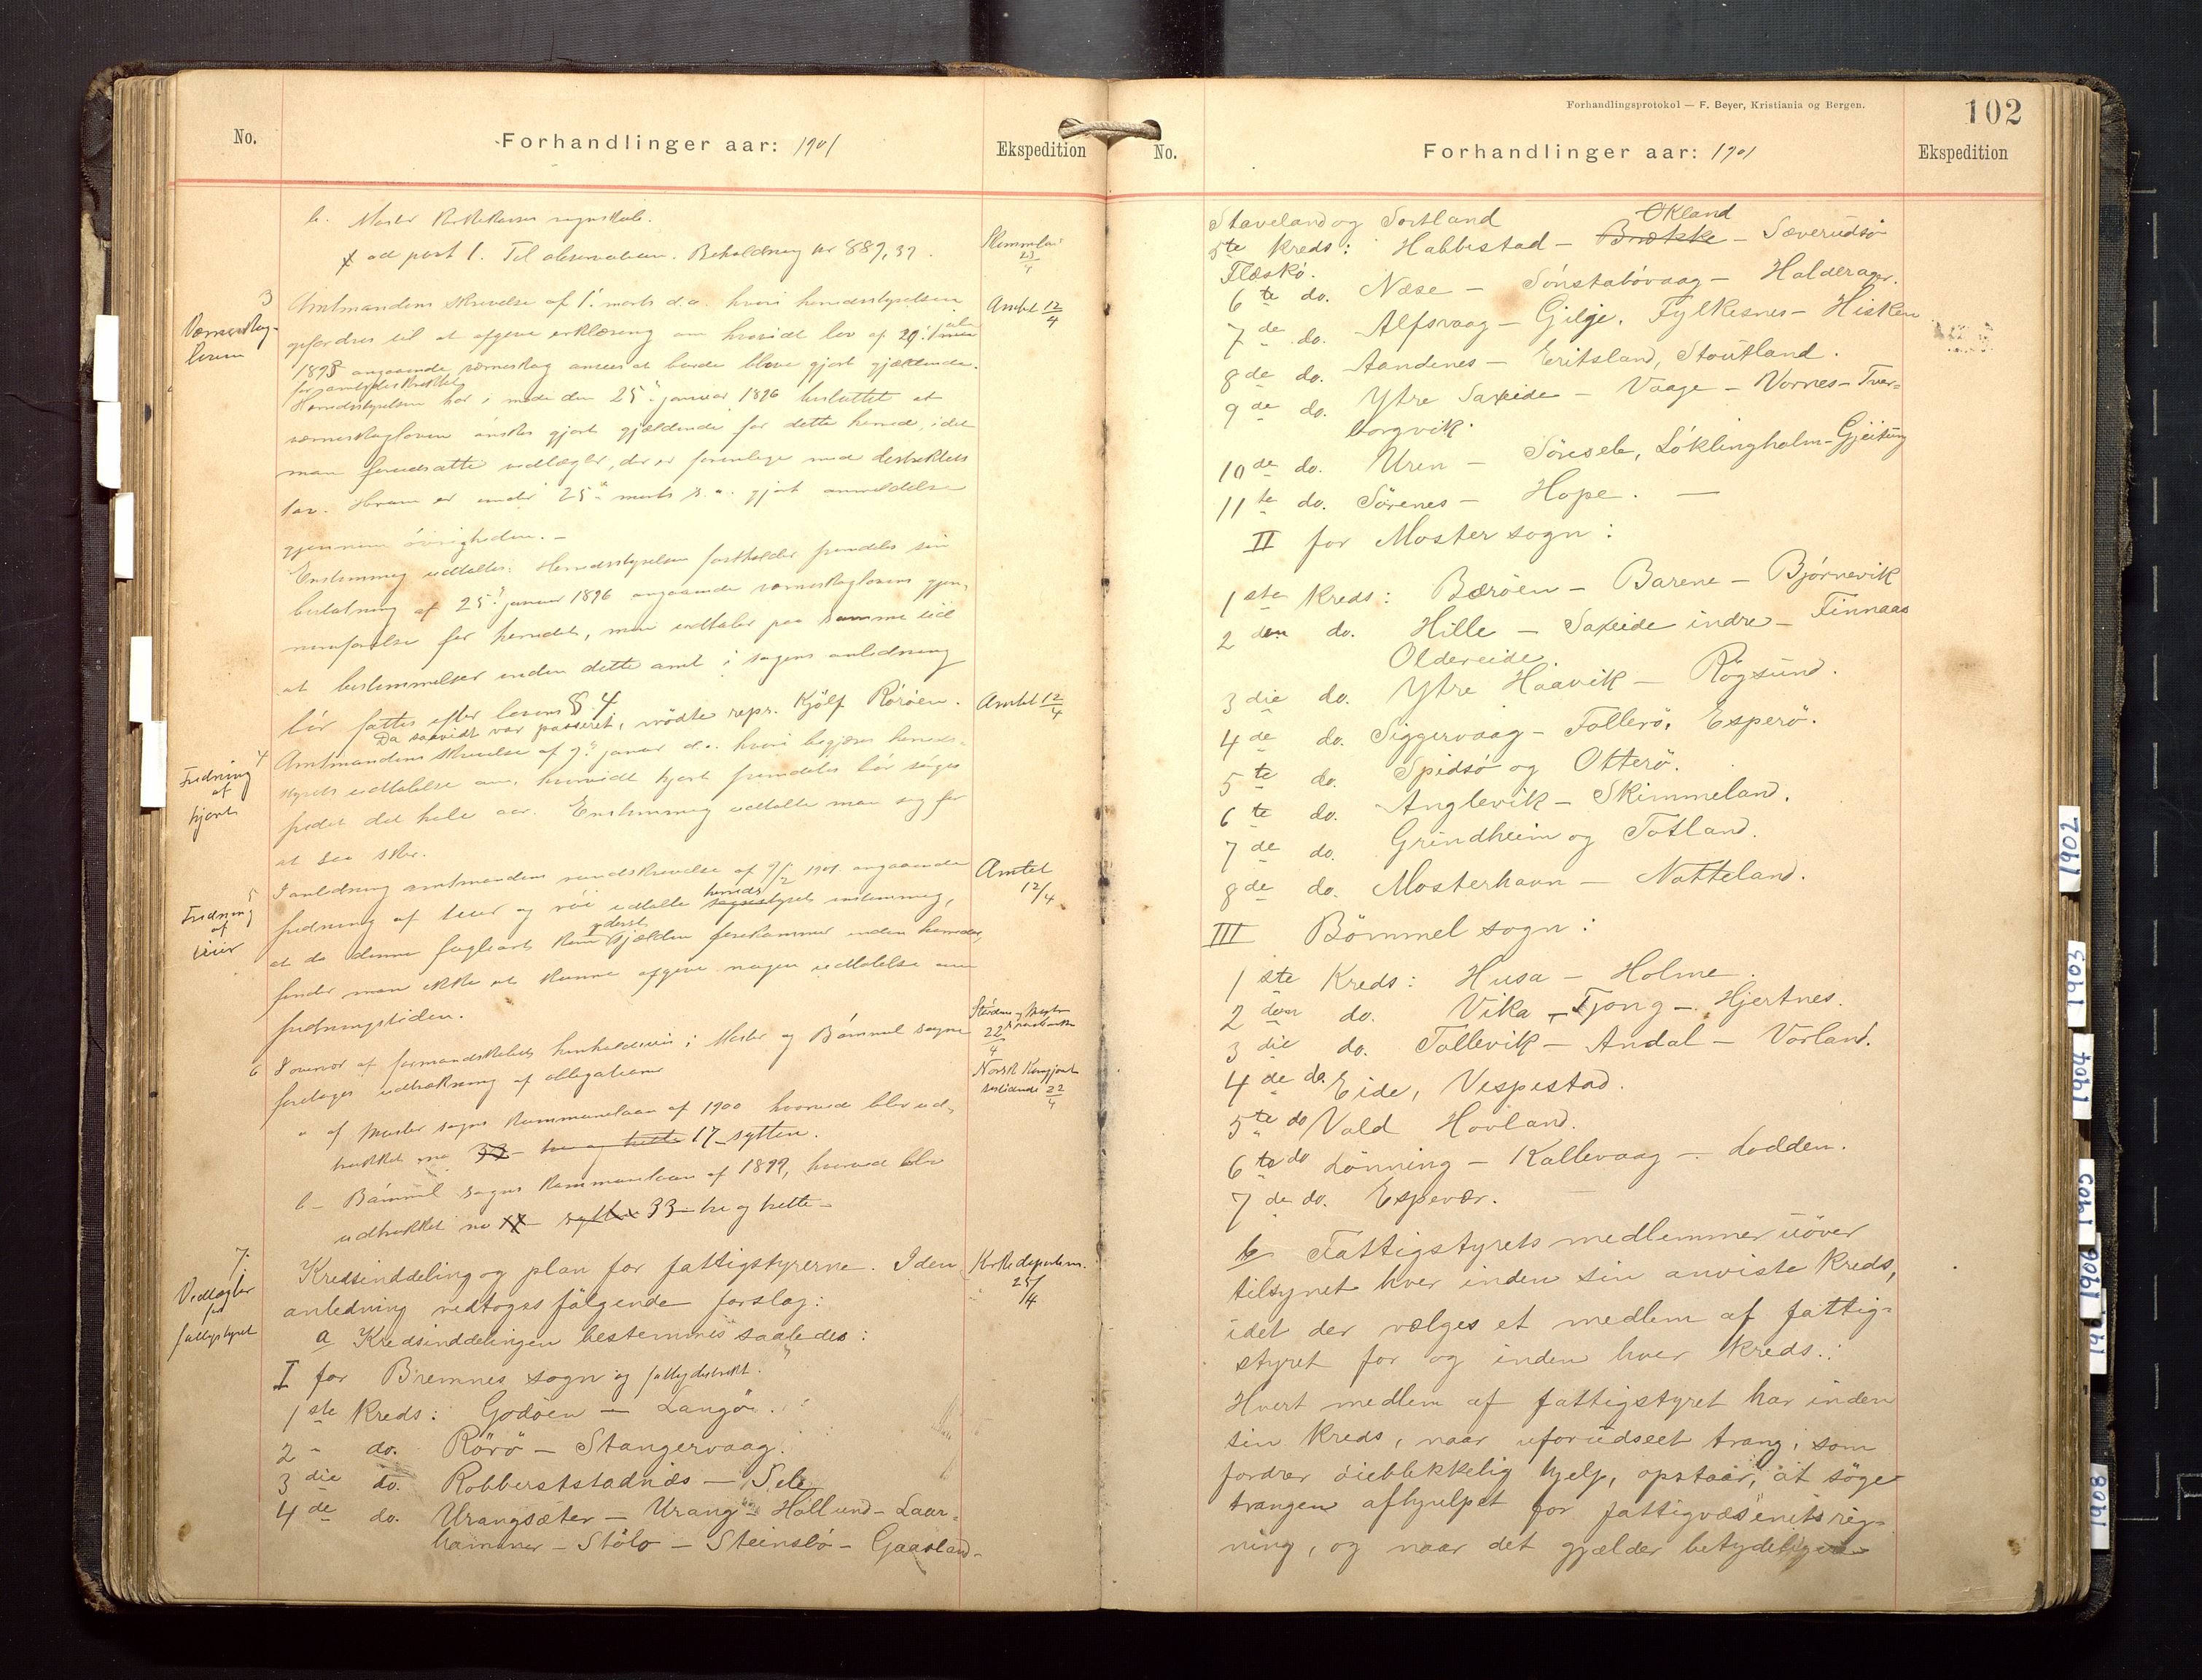 No.
Forhandlinger aar: 1901
Ekspedition
b. Moster Kirkekasses regnskab.
x ad post 1. Til observation. Beholdning kr 889,37.
23/4
3
Amtmandens skrivelse af 1. marts d.a. hvori herredsstyrelsen
Amtet 12/4
opfordres til at afgive erklæring om hvorvidt lov af 20.
1893 angaaende værneskog ansees at burde blive gjort gjældende
for amtet
Herredsstyrelsen har i møde den 25. januar 1896 besluttet at
værneskogloven ønskes gjort gjældende for dette herred, idet
man forudsatte vedtægter, der er forenlige med
lov. Herom er under 25. marts s.a. gjort anmeldelse
gjennem øvrigheden. —
Enstemmig udtaltes: Herredsstyrelsen fastholder fremdeles sin
beslutning af 25. januar 1896 angaaende værneskoglovens gjen-
nemførelse for herredet, man udtaler paa samme tid
at bestemmelser inden dette amt i sagens anledning
bør fattes efter lovens § 4
Da saavidt var passeret, mødte repr. Kjölf Rörøen.
4
Fredning
af
hjort
Amtmandens skrivelse af 9. januar d.a. hvori begjæres herreds-
Amtet 12/4
styrets udtalelse om, hvorvidt hjort fremdeles bør søges
fredet det hele aar. Enstemmig udtalte man sig for
at saa sker.
5
Fredning
af
tiur
I anledning amtmandens rundskrivelse af 9/2 1901 angaaende
Amtet
12/4
fredning af tiur og røi udtalte herredsstyret enstemmig,
at da denne fugleart kun yderst sjælden forekommer inden herredet,
finder man ikke at kunne afgive nogen udtalelse om
fredningstiden.
6
I overvær af formandskabet henholdsvis i Moster og Bömmel sogne
22/4
foretoges udtrækning af obligationer
22/4
a af Moster sogns kommunelaan af 1900 hvorved blev ud-
trukket no 33 - tre og trette 17 - sytten.
b - Bömmel sogns kommunelaan af 1899, hvorved blev
udtrukket no 17 - sytten 33 - tre og trette -
7.
Vedtægter
for
fattigstyret
Kredsinddeling og plan for fattigstyrerne. I den
Kirkedepartem.
25/4
anledning vedtoges følgende forslag:
a Kredsinddelingen bestemmes saaledes:
I for Bremnes sogn og fattigdistrikt.
1ste Kreds: Godöen — Langöi.
2 - do. Rörö — Stangervaag.
3die do. Robberststadnæs — Sele
4de do. Urangsæter — Urang - Hollund - Laar-
hammer - Stölo - Steinsbö - Gaasland -
Forhandlingsprotokol — F. Beyer, Kristiania og Bergen.
102
No.
Forhandlinger aar: 1901
Ekspedition
Staveland og Sortland
Økland
5te Kreds: Habbestad - Brække - Sæverudsø
Flæskö.
6te do. Næse - Sönstabövaag - Halderager.
7de do. Alfsvaag - Gilje. Fylkesnes - Hisken
8de do. Aandenes - Eritsland, Stoutland.
9de do. Ytre Saxeide - Vaage - Vornes - Tvær-
borgvik.
10de do. Uren - Sönsele, Löklingholm - Gjeitung
11te do. Sörenes - Hope. —
II for Moster sogn:
1ste Kreds: Bæröen - Barene - Björnevik
2den do. Hille - Saxeide indre - Finnaas
Oldereide.
3die do. Ytre Haavik - Rögsund.
4de do. Siggervaag - Follerö. Esperö.
5te do. Spidsö og Otterö.
6te do. Anglevik - Skimmeland.
7de do. Grindheim og Totland.
8de do. Mosterhavn - Notteland.
III Bömmel sogn:
1ste Kreds: Husa - Holme.
2den do. Vika - Tjong - Hjertnes.
3die do. Tollevik - Andal - Vorland.
4de do. Eide, Vespestad.
5te do Vald Hovland.
6te do Lönning - Kallevaag - Lodden.
7de do. Espevær.
b Fattigstyrets medlemmer uöver
tilsynet hver inden sin anviste kreds,
idet der vælges et medlem af fattig-
styret for og inden hver kreds.:
Hvert medlem af fattigstyret har inden
sin kreds, naar uforudseet trang, som
fordrer öieblikkelig hjelp, opstaar, at söge
trangen afhjulpet for fattigvæsenets reg-
ning, og naar det gjælder betydeligere
1902
1903
1904
1905
1906
1908